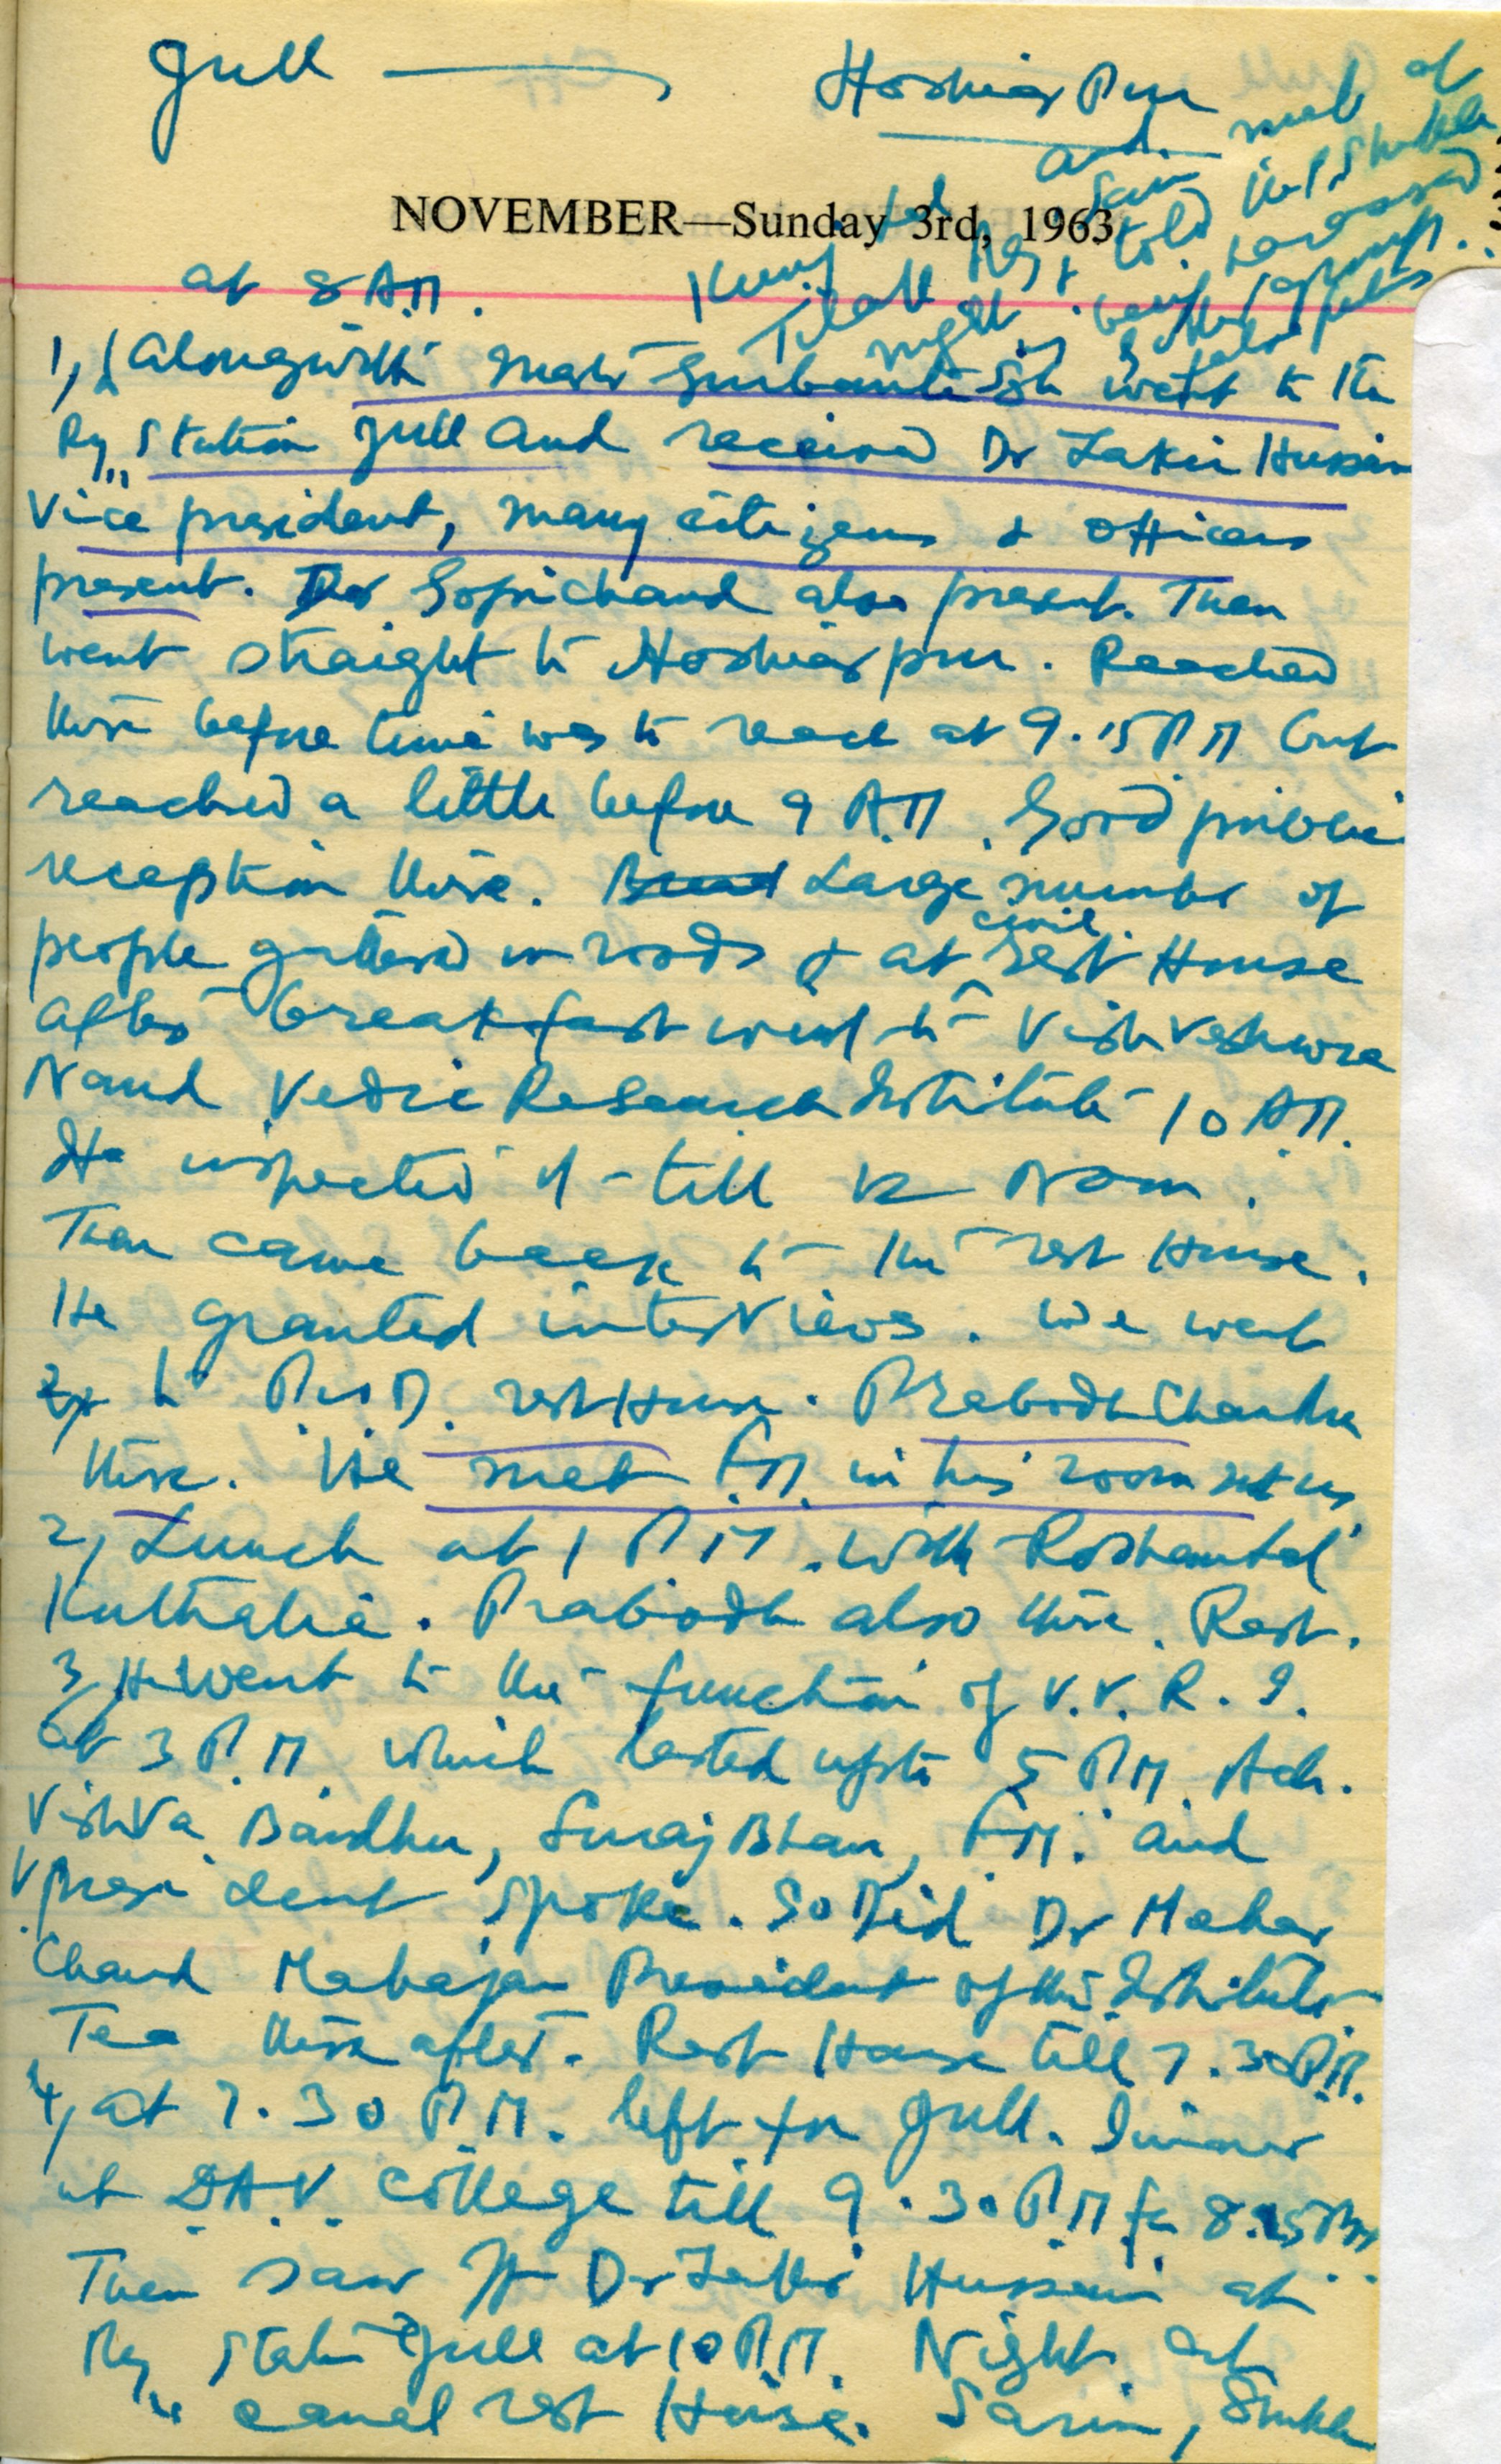 Jull — Hoshiarpur
NOVEMBER—Sunday 3rd, 1963
and met at
Tilak told that Shukla
being harassed
at 8 AM.
1, Alongwith Gurbanta Sgh went to the
Ry. Station Jull and received Dr Zakir Hussain
Vice president, many citizens & officers
present. Dr Gopichand also present. Then
went straight to Hoshiarpur. Reached
there before time was to reach at 9.15 PM but
reached a little before 9 AM. Good public
reception there. Large number of
people gathered on roads & at civil rest House
after breakfast went to Vishveshwra
Nand Vedic Research Institute 10 AM.
He inspected it till 12 Noon.
Then came back to the rest House.
He granted interviews. We went
to P.W.D. rest House. Prabodh Chandra
there. He met F.M. in his room
2, Lunch at 1 PM. with Roshanlal
Kuthalia. Prabodh also there. Rest.
3, Went to the function of V.V.R.I.
at 3 P.M. which lasted upto 5 PM. Ach.
Vishva Bandhu, Suraj Bhan, F.M. and
V president spoke. So Did Dr Mehar
Chand Mahajan President of the Institute.
Tea there after. Rest House till 7.30 P.M.
4, at 7.30 P.M. left for Jull. Dinner
at D.A.V. College till 9.30 P.M. fr 8.15 PM
Then saw off Dr Zakir Hussain at
Ry Station Jull at 10 P.M. Night at
canal rest House. Sarin, Shukla